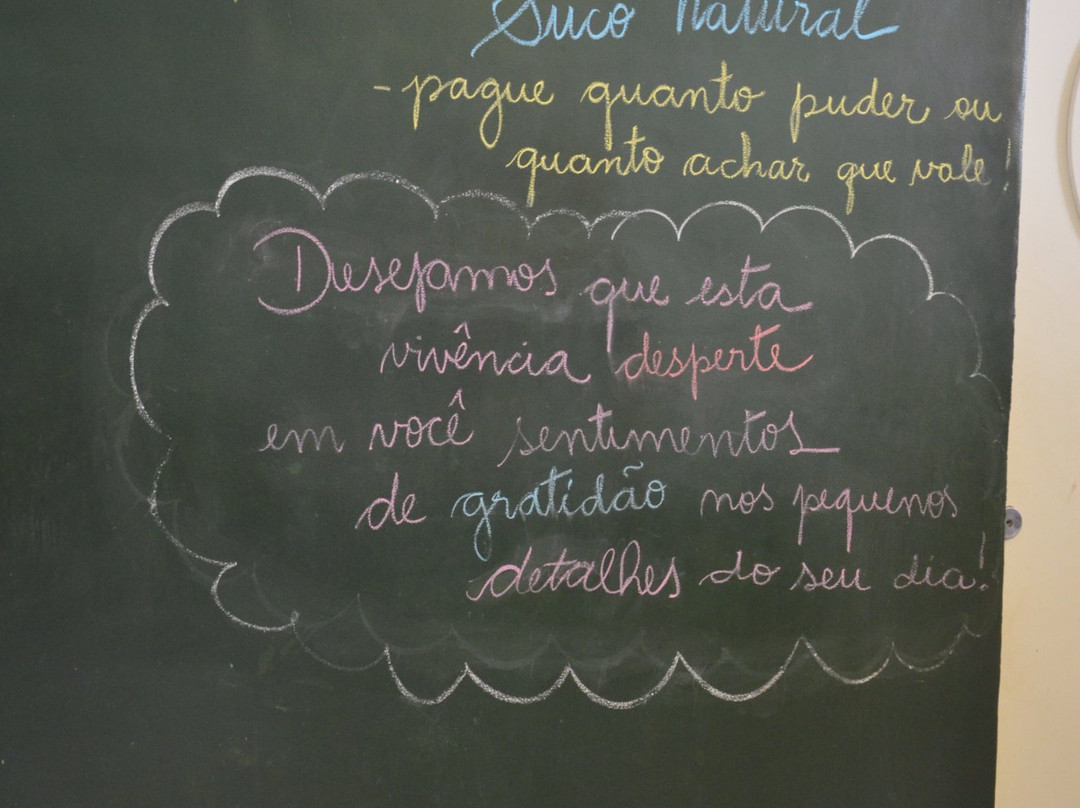 Suco Natural
- pague quanto puder ou
quanto achar que vale!
Desejamos que esta
vivência desperte
em você sentimentos
de gratidão nos pequenos
detalhes do seu dia!